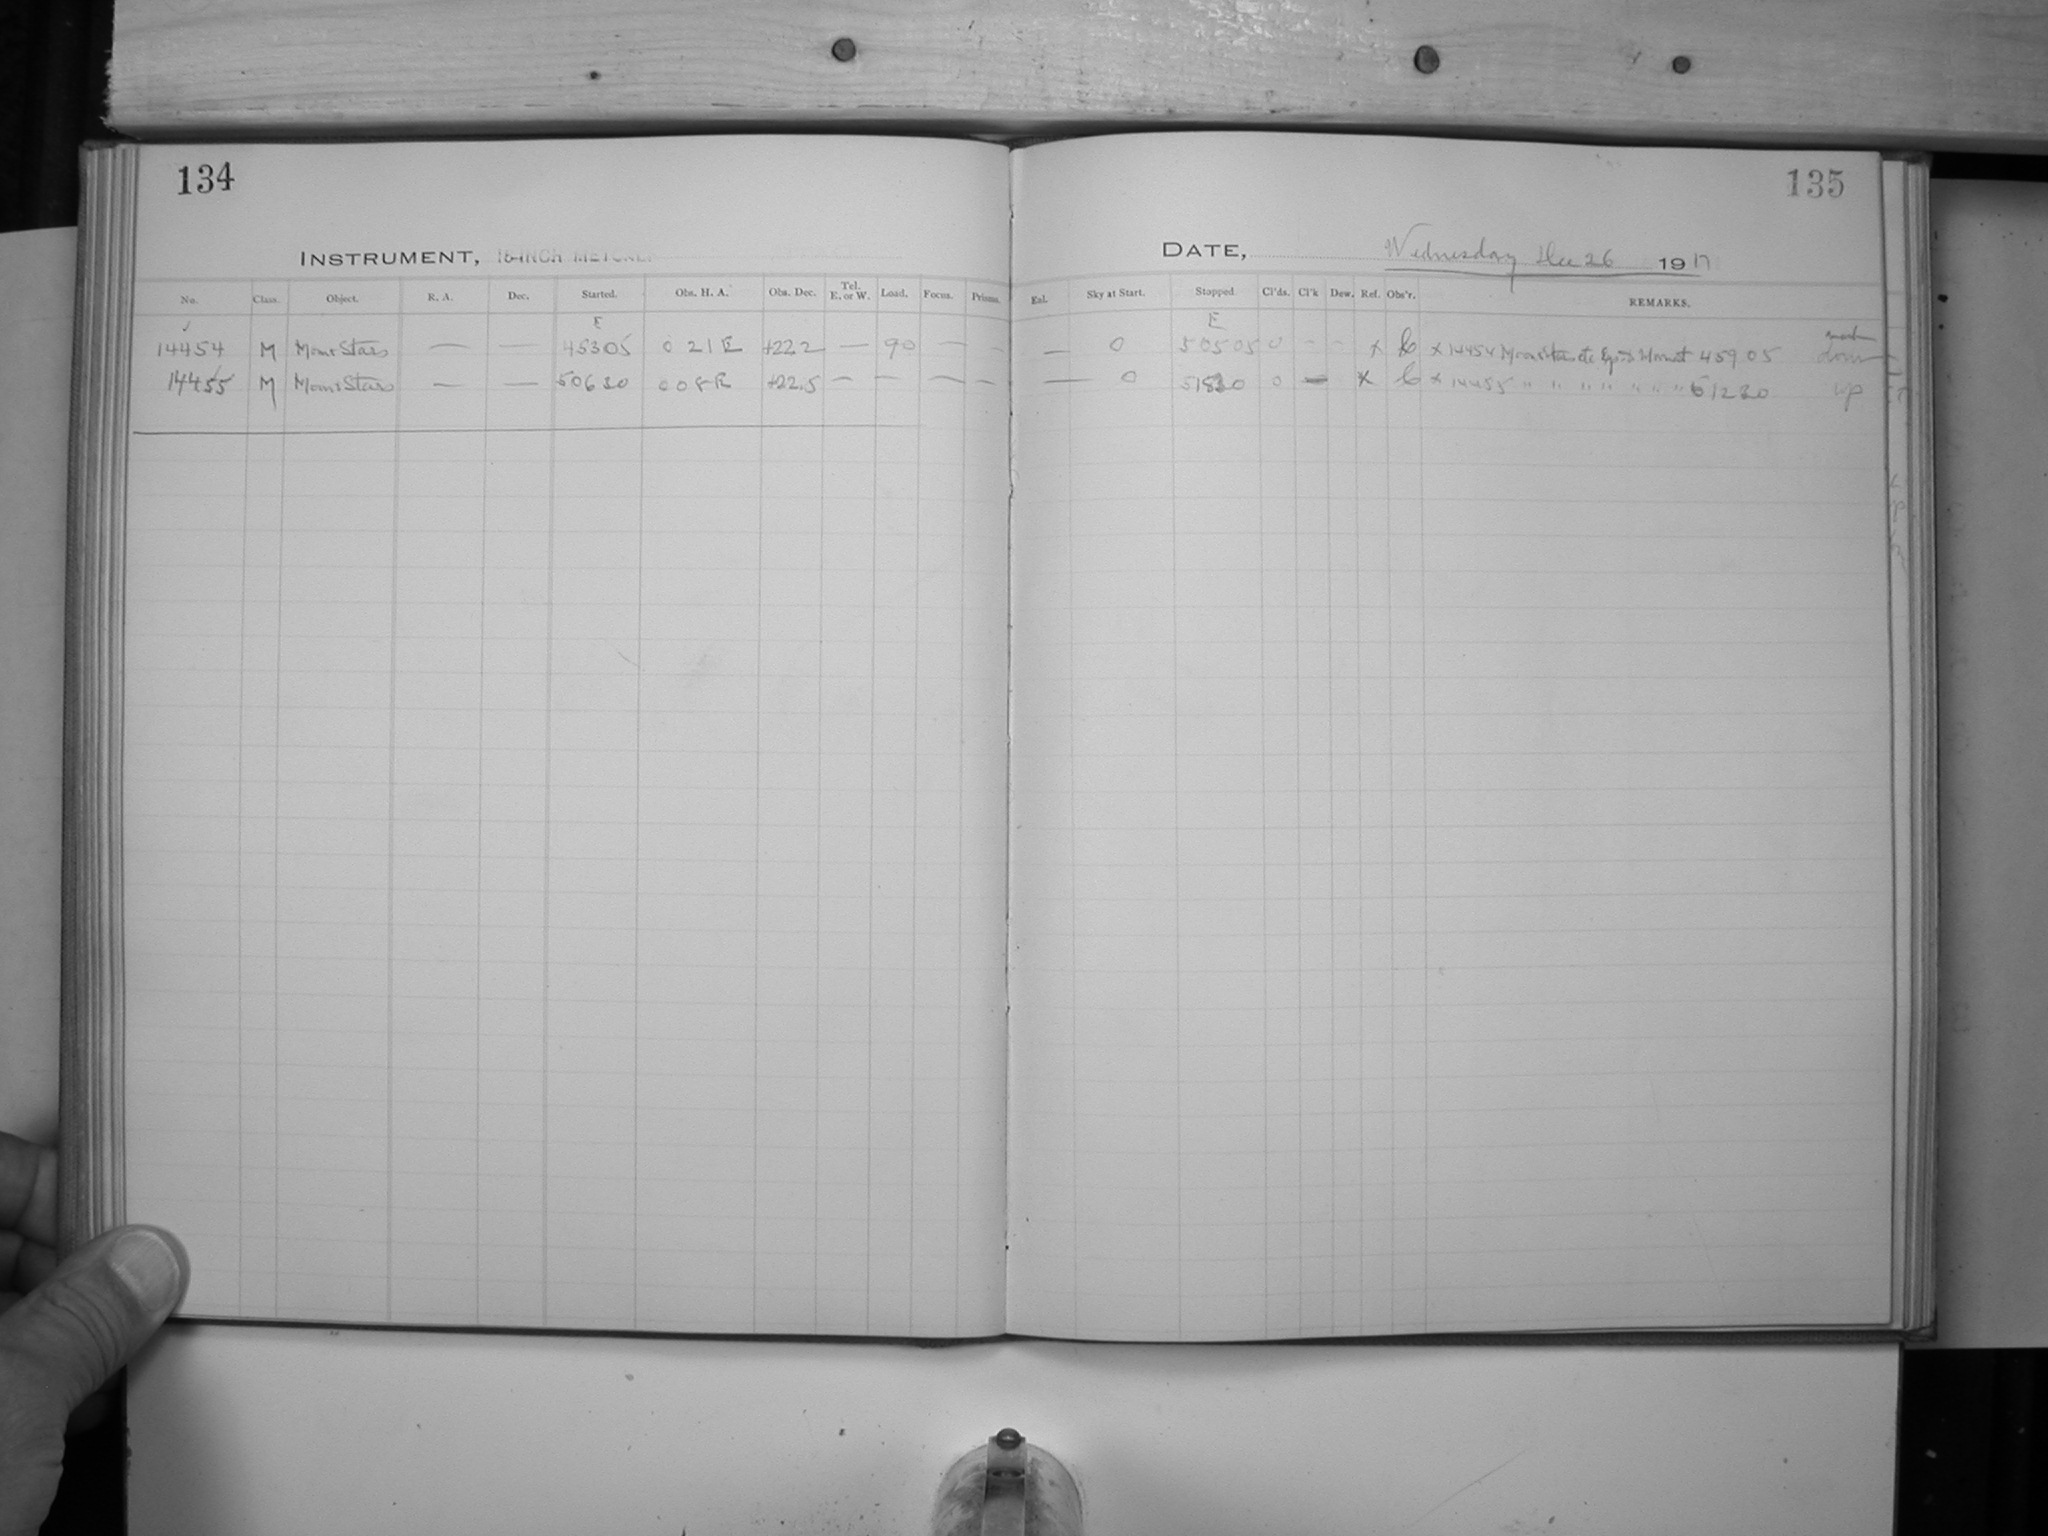 134
135
INSTRUMENT, 16-INCH METCALF
DATE, Wednesday Dec 26 1917
No. Class. Object. R. A. Dec. Started. Obs. H. A. Obs. Dec. Tel. E. or W. Load. Focus. Prisms. Exl. Sky at Start. Stopped Cl'ds. Cl'k Dew. Ref. Obs'r. REMARKS.
E E
14454 M Moon & Stars — — 45305 0 21 E +22.2 — 90 — — — 0 50505 0 - - x x 14454 Moon & Stars etc 45905 down
14455 M Moon & Stars — — 50630 0 08 E +22.5 — — — — — 0 51830 0 — x x 14455 " " " " " " " 51230 up